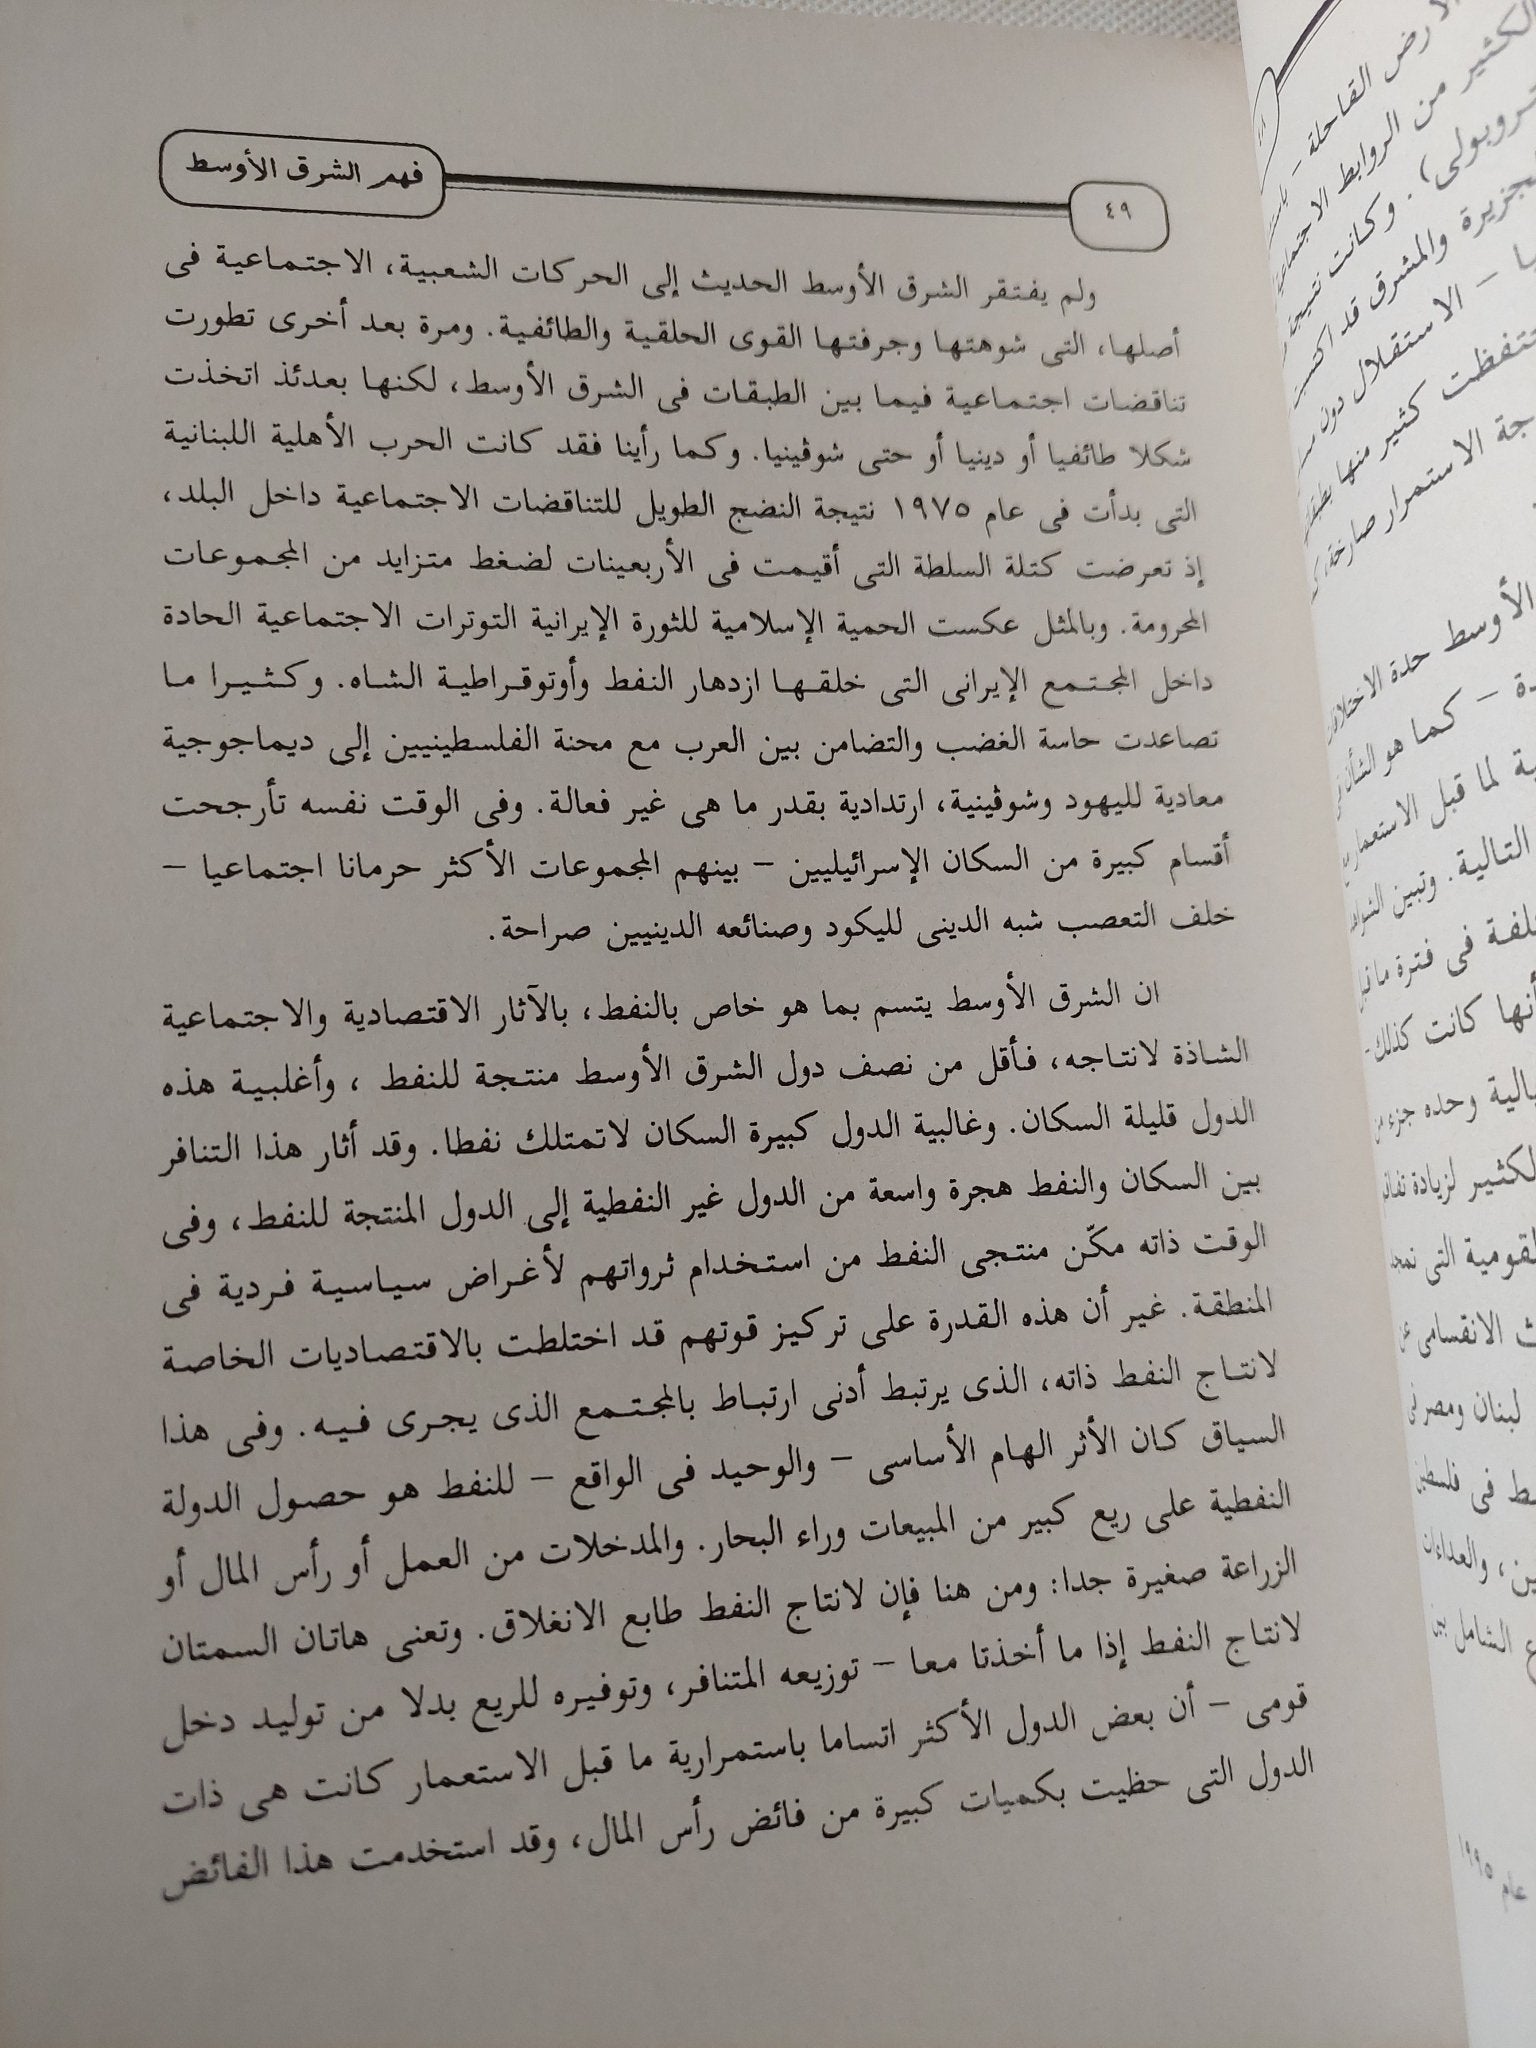 فهم الشرق الأوسط
٤٩
ولم يفتقر الشرق الأوسط الحديث إلى الحركات الشعبية، الاجتماعية فى
أصلها، التى شوهتها وجرفتها القوى الحلقية والطائفية. ومرة بعد أخرى تطورت
تناقضات اجتماعية فيما بين الطبقات فى الشرق الأوسط، لكنها بعدئذ اتخذت
شكلا طائفيا أو دينيا أو حتى شوڤينيا. وكما رأينا فقد كانت الحرب الأهلية اللبنانية
التى بدأت فى عام ١٩٧٥ نتيجة النضج الطويل للتناقضات الاجتماعية داخل البلد،
إذ تعرضت كتلة السلطة التى أقيمت فى الأربعينات لضغط متزايد من المجموعات
المحرومة. وبالمثل عكست الحمية الإسلامية للثورة الإيرانية التوترات الاجتماعية الحادة
داخل المجتمع الإيرانى التى خلقها ازدهار النفط وأوتوقراطية الشاه. وكثيرا ما
تصاعدت حاسة الغضب والتضامن بين العرب مع محنة الفلسطينيين إلى ديماجوجية
معادية لليهود وشوڤينية، ارتدادية بقدر ما هى غير فعالة. وفى الوقت نفسه تأرجحت
أقسام كبيرة من السكان الإسرائيليين – بينهم المجموعات الأكثر حرمانا اجتماعيا –
خلف التعصب شبه الدينى لليكود وصنائعه الدينيين صراحة.
ان الشرق الأوسط يتسم بما هو خاص بالنفط، بالآثار الاقتصادية والاجتماعية
الشاذة لانتاجه، فأقل من نصف دول الشرق الأوسط منتجة للنفط ، وأغلبية هذه
الدول قليلة السكان. وغالبية الدول كبيرة السكان لاتمتلك نفطا. وقد أثار هذا التنافر
بين السكان والنفط هجرة واسعة من الدول غير النفطية إلى الدول المنتجة للنفط، وفى
الوقت ذاته مكّن منتجى النفط من استخدام ثرواتهم لأغراض سياسية فردية فى
المنطقة. غير أن هذه القدرة على تركيز قوتهم قد اختلطت بالاقتصاديات الخاصة
لانتاج النفط ذاته، الذى يرتبط أدنى ارتباط بالمجتمع الذى يجرى فيه. وفى هذا
السياق كان الأثر الهام الأساسى – والوحيد فى الواقع – للنفط هو حصول الدولة
النفطية على ريع كبير من المبيعات وراء البحار. والمدخلات من العمل أو رأس المال أو
الزراعة صغيرة جدا: ومن هنا فإن لانتاج النفط طابع الانغلاق. وتعنى هاتان السمتان
لانتاج النفط إذا ما أخذتا معا – توزيعه المتنافر، وتوفيره للريع بدلا من توليد دخل
قومى – أن بعض الدول الأكثر اتساما باستمرارية ما قبل الاستعمار كانت هى ذات
الدول التى حظيت بكميات كبيرة من فائض رأس المال، وقد استخدمت هذا الفائض
القاحلة –
الكثير من الروابط الاجتماعية
وكانت نتيجة
والمشرق قد اكتسب
– الاستقلال دون
كثير منها
الاستمرار صارخة،
الأوسط حدة الاختلافات
– كما هو الشأن
لما قبل الاستعمار
التالية. وتبين الشواهد
فى فترة ما قبل
أنها كانت كذلك-
وحده جزء من
لزيادة
التى
الانقسامى
لبنان ومصر فى
فى فلسطين
، والعداءات
الشامل بين
عام ١٩٩٥